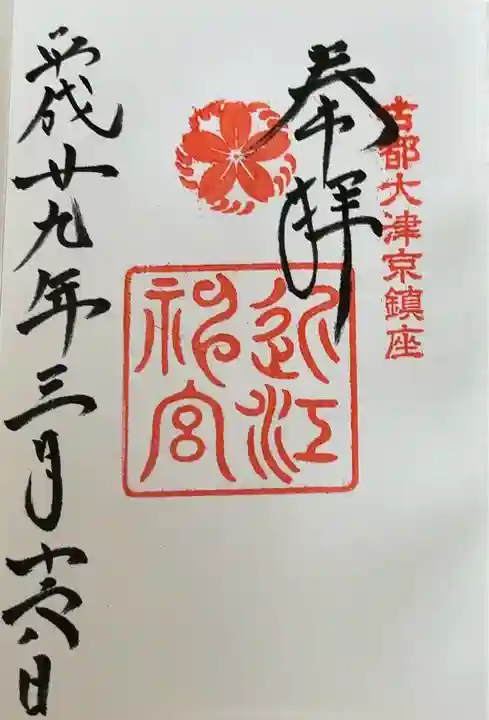 古都大津京鎮座
奉拝
近江
神宮
平成廿九年三月十六日